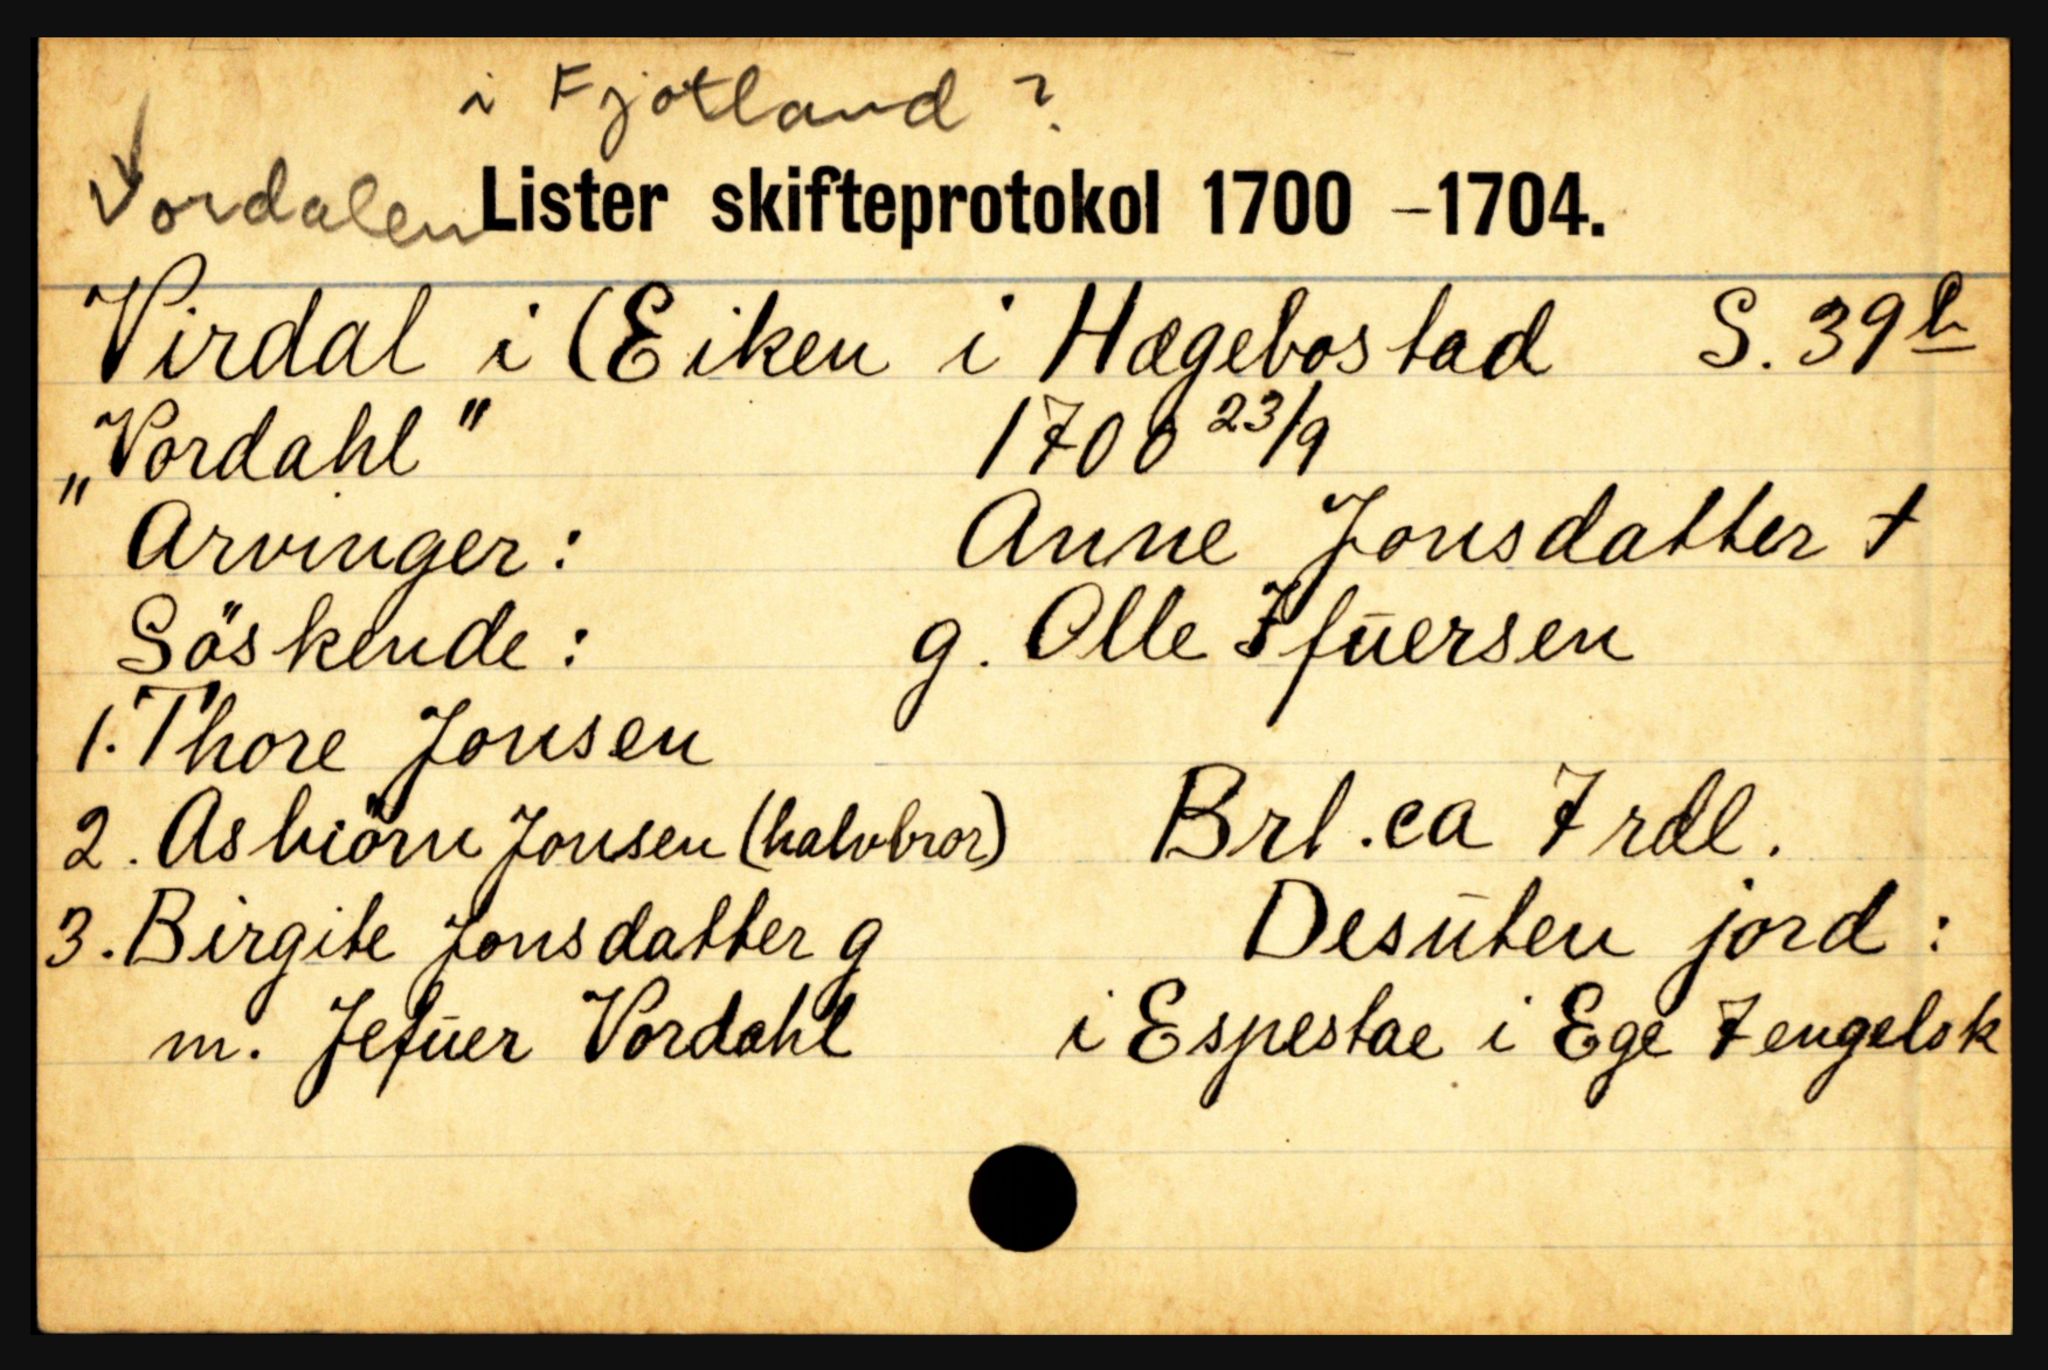 i Fjotland ?
Vordalen Lister skifteprotokol 1700 -1704.
Virdal i (Eiken i Hægebostad S. 39 b
„Vordahl" 1700 23/9
Arvinger: Anne Jonsdatter †
Söskende: g. Olle Ifūersen
1. Thore Jonsen
2. Asbiörn Jonsen (halvbror) Brl. ca 7 rdl.
3. Birgite Jonsdatter g Desūten jord:
m. Jefūer Vordahl i Espestae i Ege 7 engelsk